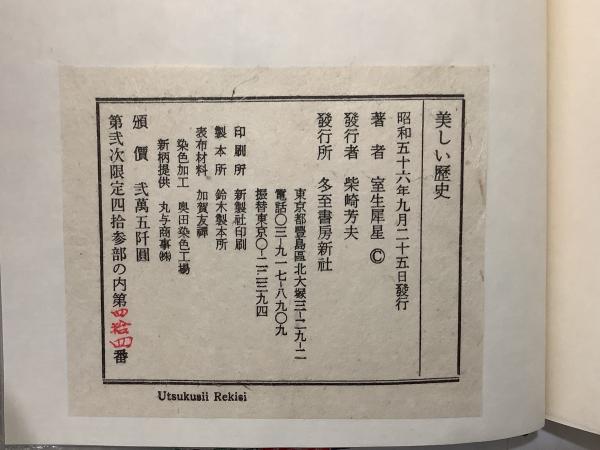 美しい歷史
昭和五十六年九月二十五日發行
著者 室生犀星 ©
發行者 柴崎芳夫
發行所 冬至書房新社
東京都豊島區北大塚三-二九-二
電話〇三-九一七-八九〇九
振替東京〇-二二三九四
印刷所 新製社印刷
製本所 鈴木製本所
表布材料 加賀友禪
染色加工 奥田染色工場
新柄提供 丸与商事㈱
頒價 弐萬五阡圓
第弐次限定四拾参部の内第四拾四番
Utsukusii Rekisi